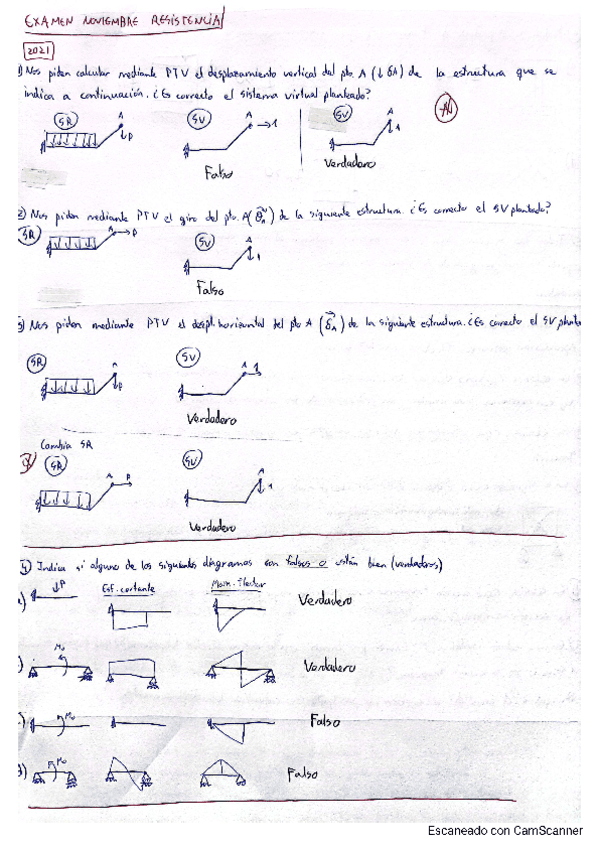 EXAMEN NOVIEMBRE RESISTENCIA
2021
1) Nos piden calcular mediante PTV el desplazamiento vertical del pto. A (↓ δA) de la estructura que se
indica a continuación. ¿Es correcto el sistema virtual planteado?
SR
SV
SV
A
P
A
1
A
1
Falso
Verdadero
2) Nos piden mediante PTV el giro del pto. A (θA) de la siguiente estructura. ¿Es correcto el SV planteado?
SR
A
P
SV
A
1
Falso
3) Nos piden mediante PTV el despl. horizontal del pto A (δA) de la siguiente estructura. ¿Es correcto el SV planteado
SR
SV
A
P
A
1
Verdadero
Cambia SR
SR
SV
A
P
A
1
Verdadero
4) Indica si alguno de los siguientes diagramas son falsos o están bien (verdaderos)
P
Esf. cortante
Mom. flector
Verdadero
Mo
Verdadero
Mo
Falso
Mo
Falso
Escaneado con CamScanner